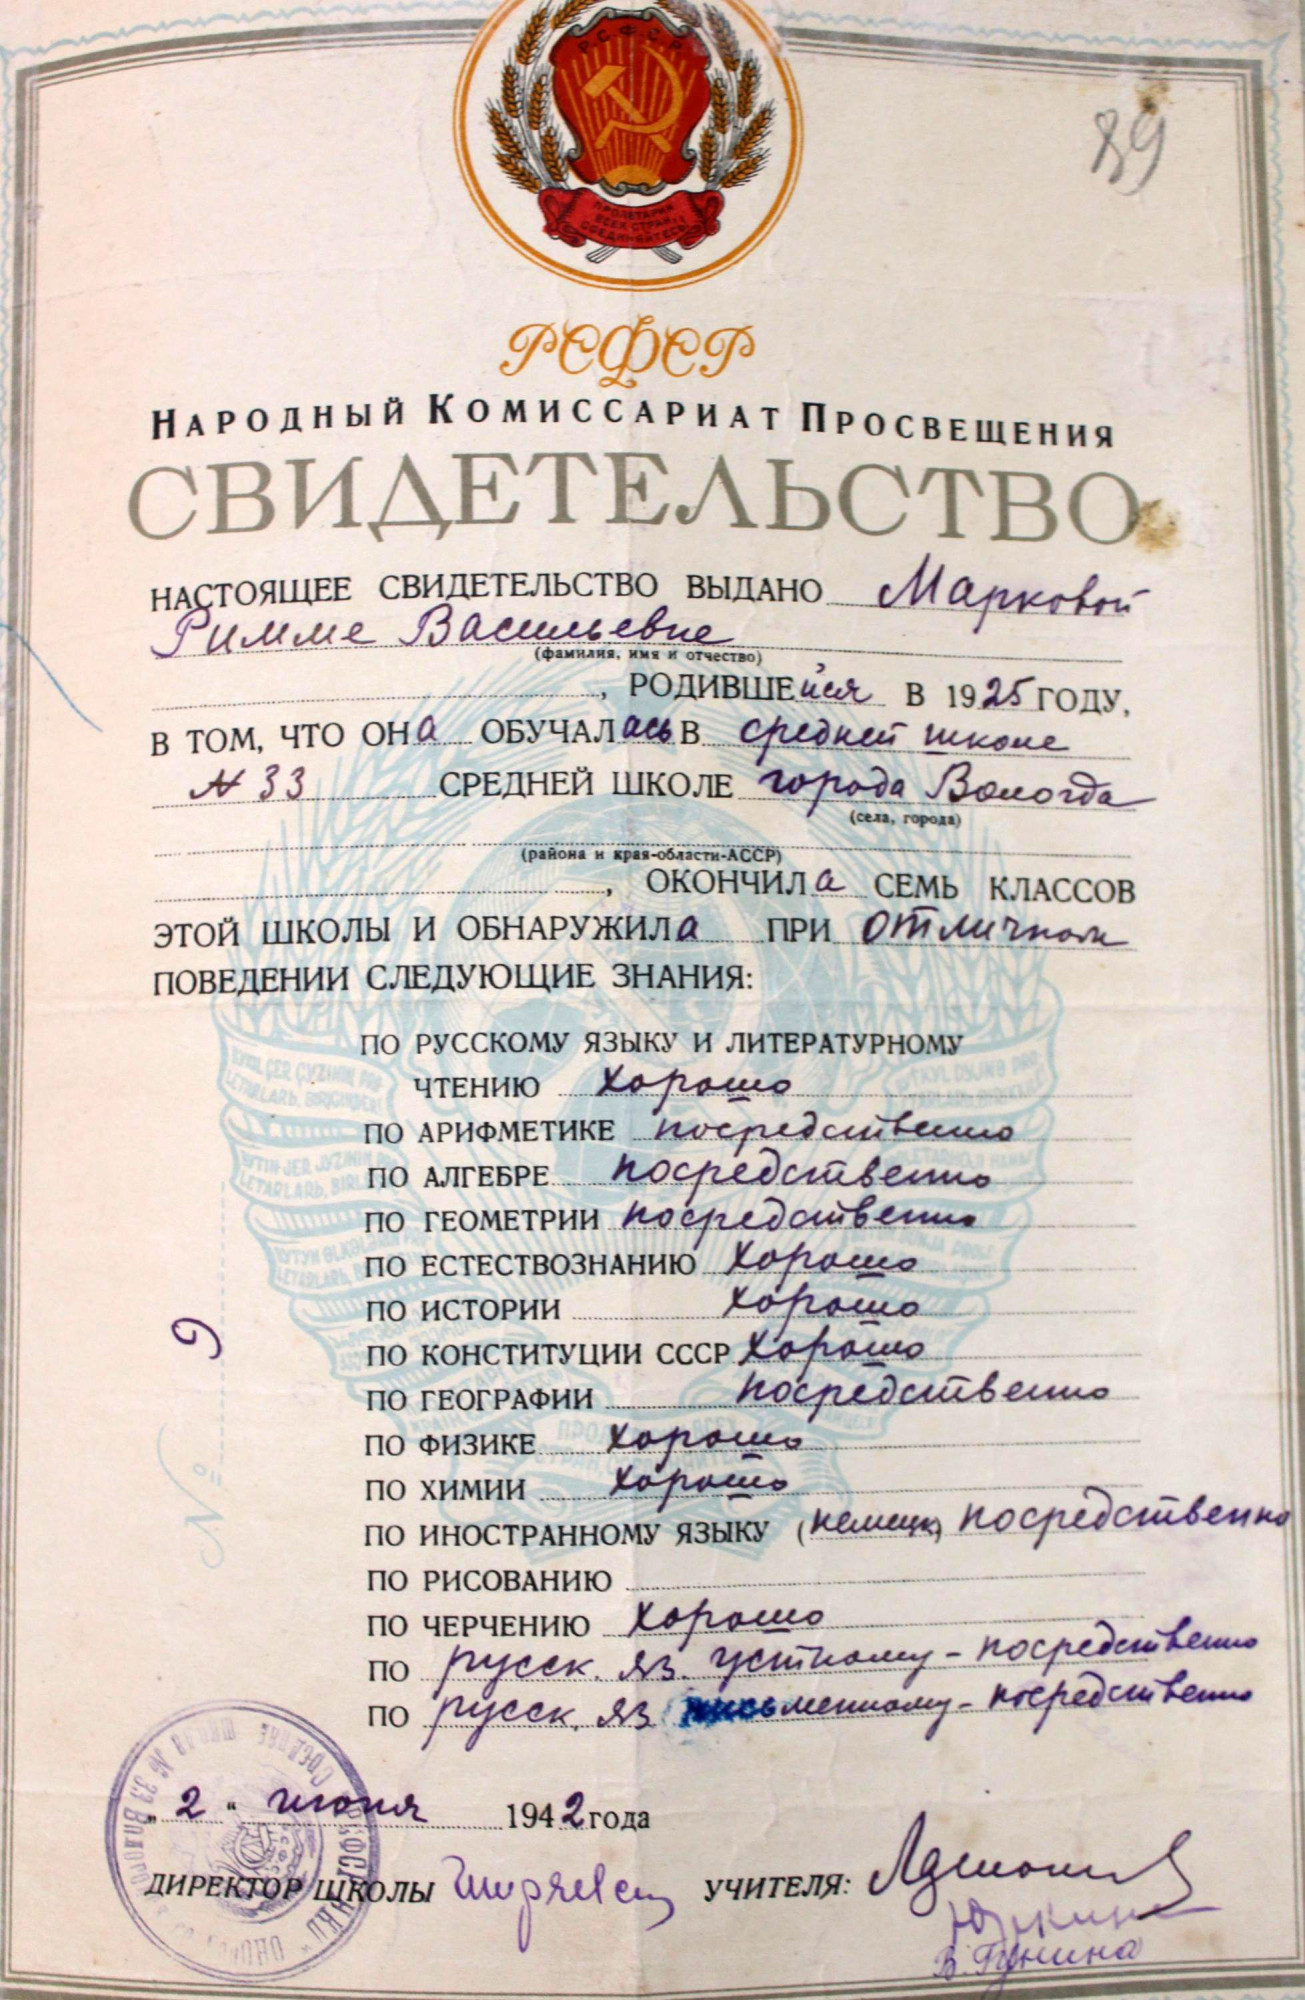 Р.С.Ф.С.Р.
ПРОЛЕТАРИИ
ВСЕХ СТРАН,
СОЕДИНЯЙТЕСЬ!
89
РСФСР
НАРОДНЫЙ КОМИССАРИАТ ПРОСВЕЩЕНИЯ
СВИДЕТЕЛЬСТВО
НАСТОЯЩЕЕ СВИДЕТЕЛЬСТВО ВЫДАНО Марковой
Римме Васильевне
(фамилия, имя и отчество)
, РОДИВШЕйся В 1925 ГОДУ,
В ТОМ, ЧТО ОНа ОБУЧАЛась В средней школе
№ 33 СРЕДНЕЙ ШКОЛЕ города Вологда
(села, города)
(района и края-области-АССР)
, ОКОНЧИЛа СЕМЬ КЛАССОВ
ЭТОЙ ШКОЛЫ И ОБНАРУЖИЛа ПРИ отличном
ПОВЕДЕНИИ СЛЕДУЮЩИЕ ЗНАНИЯ:
ПО РУССКОМУ ЯЗЫКУ И ЛИТЕРАТУРНОМУ
ЧТЕНИЮ хорошо
ПО АРИФМЕТИКЕ посредственно
ПО АЛГЕБРЕ посредственно
ПО ГЕОМЕТРИИ посредственно
ПО ЕСТЕСТВОЗНАНИЮ хорошо
ПО ИСТОРИИ хорошо
ПО КОНСТИТУЦИИ СССР хорошо
ПО ГЕОГРАФИИ посредственно
ПО ФИЗИКЕ хорошо
ПО ХИМИИ хорошо
ПО ИНОСТРАННОМУ ЯЗЫКУ (немецк) посредственно
ПО РИСОВАНИЮ
ПО ЧЕРЧЕНИЮ хорошо
ПО русск. яз. устному - посредственно
ПО русск. яз письменному - посредственно
№ 9
„2“ июня 1942 года
ДИРЕКТОР ШКОЛЫ УЧИТЕЛЯ:
В. Гунина